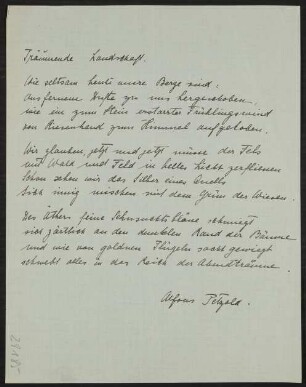 Träumende Landschaft.
Wie seltsam heute unsre Berge sind:
Aus fernem Dufte zu uns hergeschoben,
wie ein zum Stein erstarrter Frühlingswind
von Riesenhand zum Himmel aufgehoben.
Wir glauben jetzt und jetzt müsse der Fels
und Wald und Feld in helles Licht zerfliessen
Schon sehen wir das Silber eines Quells
Sich innig mischen mit dem Grün der Wiesen.
Des Äthers feine Sehnsuchtsbläue schmiegt
sich zärtlich an den dunklen Rand der Bäume
und wie von goldnen Flügeln sacht gewiegt
schwebt alles in das Reich der Abendträume.
Alfons Petzold.